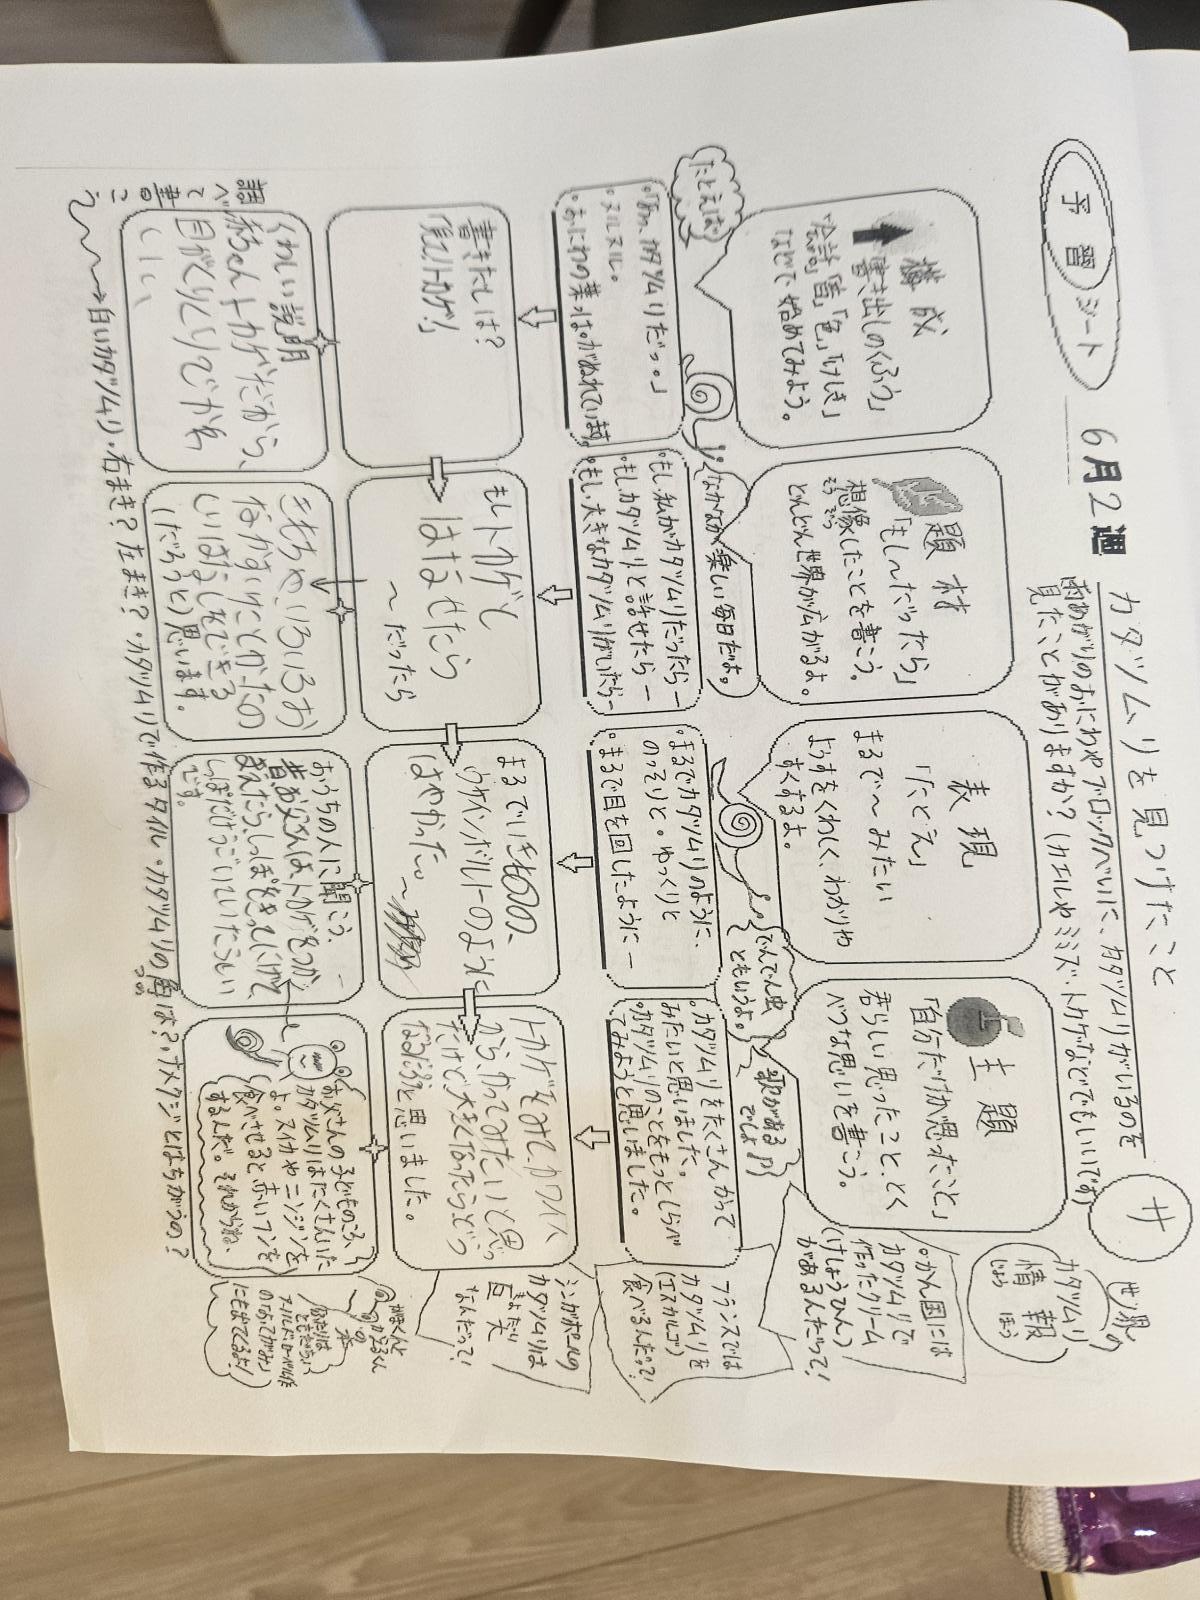 予習シート
6月2週
カタツムリを見つけたこと
サ
雨あがりのおにわやブロックべいに、カタツムリがいるのを
見たことがありますか？（カエルやミミズ・トカゲなどでもいいです）
世界の
カタツムリ
情報
じょう ほう
構成
「書き出しのくふう」
「会話」「音」「色」「けしき」
などで始めてみよう。
題材
「もし〜だったら」
想像したことを書こう。
そう ぞう
どんどん世界が広がるよ。
表現
「たとえ」
まるで〜みたい
ようすをくわしく、わかりや
すくするよ。
主題
「自分だけが思ったこと」
君らしい思ったこと、とく
べつな思いを書こう。
。かん国には
カタツムリで
作ったクリーム
（けしょうひん）
があるんだって！
たとえば
なかなか楽しい毎日だよ。
でんでん虫
ともいうよ。
歌がある
でしょ
。「あっ、カタツムリだっ。」
。ヌルヌル。
。おにわの葉っぱがぬれています。
。もし、私がカタツムリだったらー
。もし、カタツムリと話せたらー
。もし、大きなカタツムリがいたらー
。まるでカタツムリのように、
のっそりと。ゆっくりと
。まるで目を回したようにー
。カタツムリをたくさんかって
みたいと思いました。
。カタツムリのことをもっとしらべ
てみようと思いました。
フランスでは
カタツムリを
（エスカルゴ）
食べるんだって！
書きだしは？
「見て！トカゲ！」
もしトカゲと
はなせたら
〜だったら
まるで
ウサインボルトのように
はやかった。〜
トカゲをみて、カワイイ
から、かってみたいと思っ
たけど大きくなったらどう
なるだろうと思いました。
シンガポールの
カタツムリは
巨大
きょだい
なんだって！
くわしい説明
赤ちゃんトカゲだから、
目がくりくりでかわ
いい、
きもちや、いろいろお
なかすいたとかたの
しいはなしをできる
（だろうと）思います。
おうちの人に聞こう。
昔お父さんは、トカゲをつか
まえたら、しっぽをきってにげて、
しっぽだけうごいていたらしい
です。
お父さんの子どものころ、
カタツムリはたくさんいた
よ。スイカやニンジンを
食べさせると赤いフンを
するんだ。それからね、
がまくんと
かえるくん
の
本
「ふたりは
ともだち」
アーノルド・ローベル作
の「おてがみ」
にも出てるよ！
調べて書こう
白いカタツムリ・右まき？左まき？・カタツムリで作るタイル・カタツムリの角は？・ナメクジとはちがうの？
つの